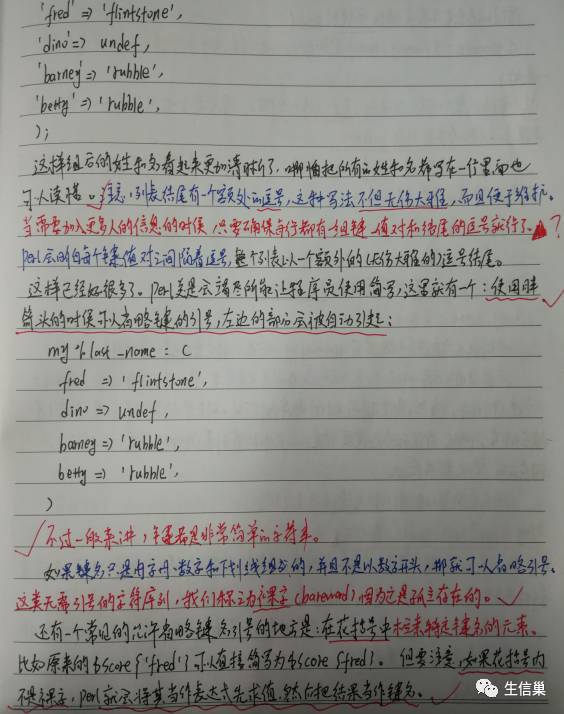 'fred' => 'flintstone',
'dino' => undef,
'barney' => 'rubble',
'betty' => 'rubble',
);
这样组后的姓和名看起来更加清晰了,哪怕把所有的姓和名都写在一行里面也
可以读懂。注意,列表结尾有一个额外的逗号,这种写法不但无伤大雅,而且便于维护。
当需要加入更多人的信息的时候,只要确保每行都有一组键-值对和结尾的逗号就行了。?
perl会明白每个键值对之间隔着逗号,整个列表以一个额外的(无伤大雅的)逗号结尾。
这样已经好很多了。perl总是会竭尽所能让程序员使用简写,这里就有一个:使用胖
箭头的时候可以省略键的引号,左边的部分会被自动引起:
my %last_name = (
fred => 'flintstone',
dino => undef,
barney => 'rubble',
betty => 'rubble',
)
不过一般来讲,键都是非常简单的字符串。
如果键名只是由字母、数字和下划线组成的,并且不是以数字开头,那就可以省略引号。
这类无需引号的字符序列,我们称之为裸字(bareword)因为它是孤立存在的。
还有一个常见的允许省略键名引号的地方是:在花括号中检索特定键名的元素。
比如原来的$score{'fred'}可以直接简写为$score{fred}。但要注意,如果花括号内
不是裸字,perl就会将其当作表达式先求值,然后把结果当作键名。
生信巢